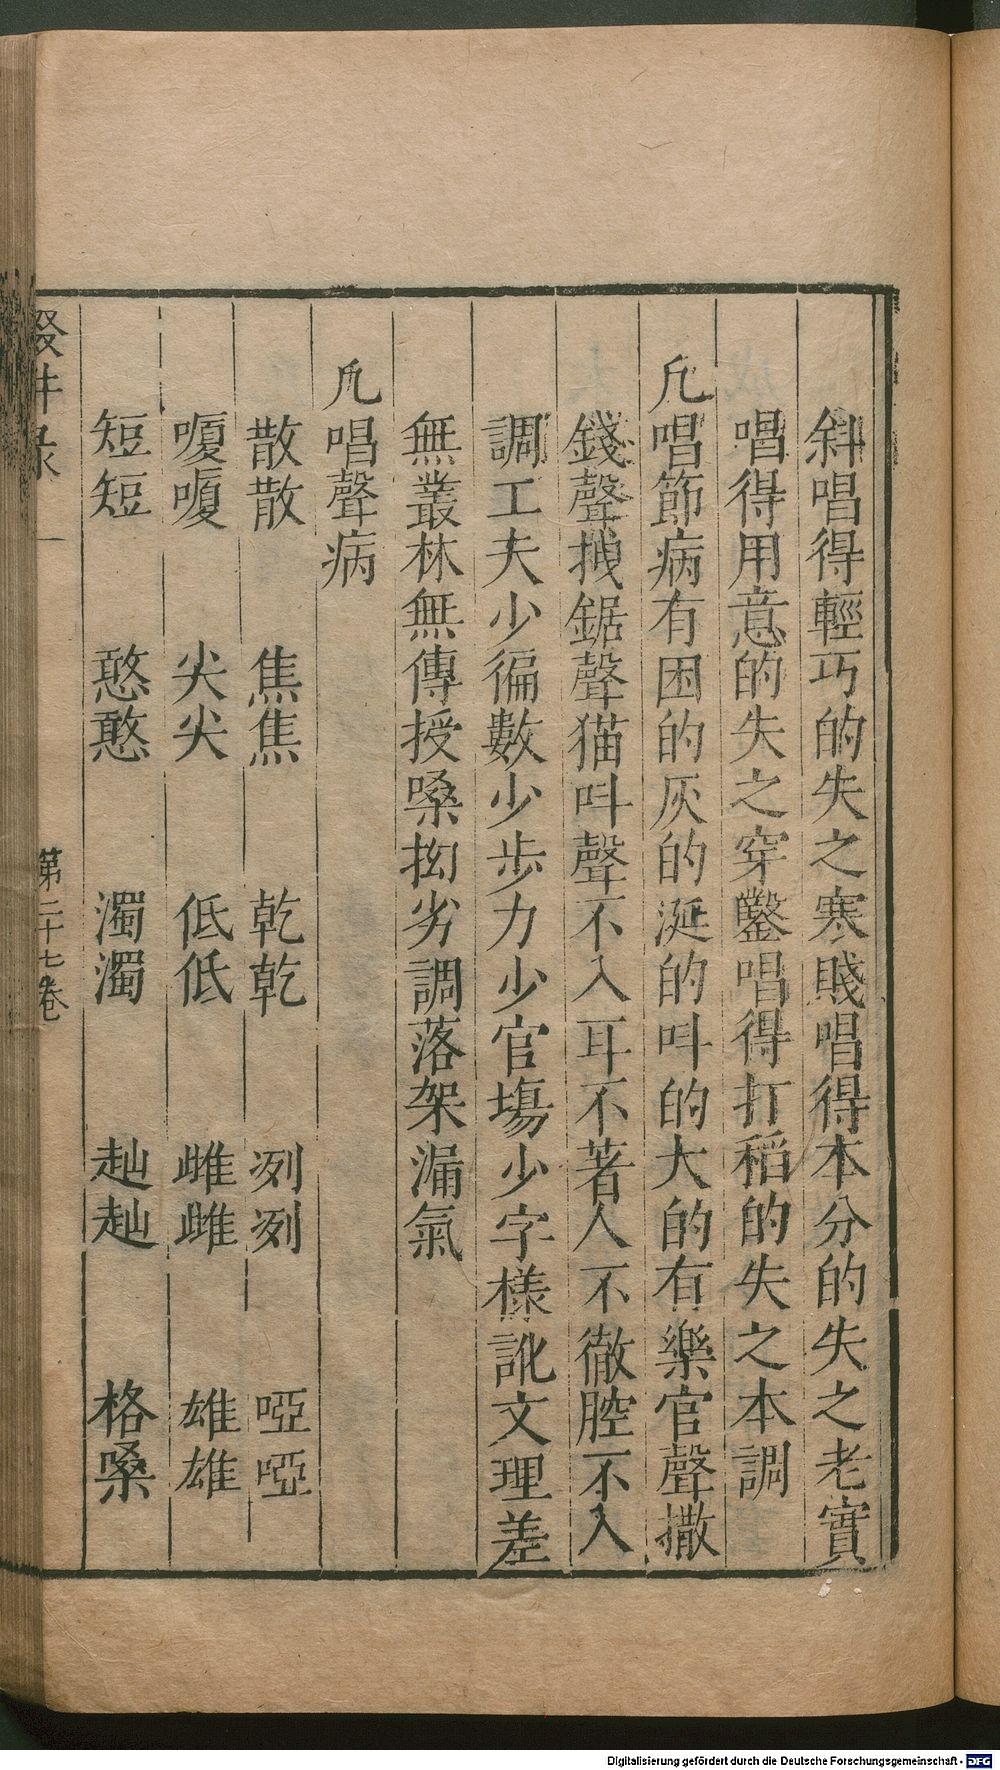 斜唱得輕巧的失之寒賤唱得本分的失之老實
唱得用意的失之穿鑿唱得打稻的失之本調
凡唱節病有困的灰的涎的叫的大的有樂官聲撒
錢聲拽鋸聲猫叫聲不入耳不著人不徹腔不入
調工夫少徧數少步力少官塲少字樣訛文理差
無叢林無傳授嗓拗劣調落架漏氣
凡唱聲病
散散 焦焦 乾乾 冽冽 啞啞
嗄嗄 尖尖 低低 雌雌 雄雄
短短 憨憨 濁濁 赸赸 格嗓
輟耕录 第二十七卷
Digitalisierung gefördert durch die Deutsche Forschungsgemeinschaft - DFG